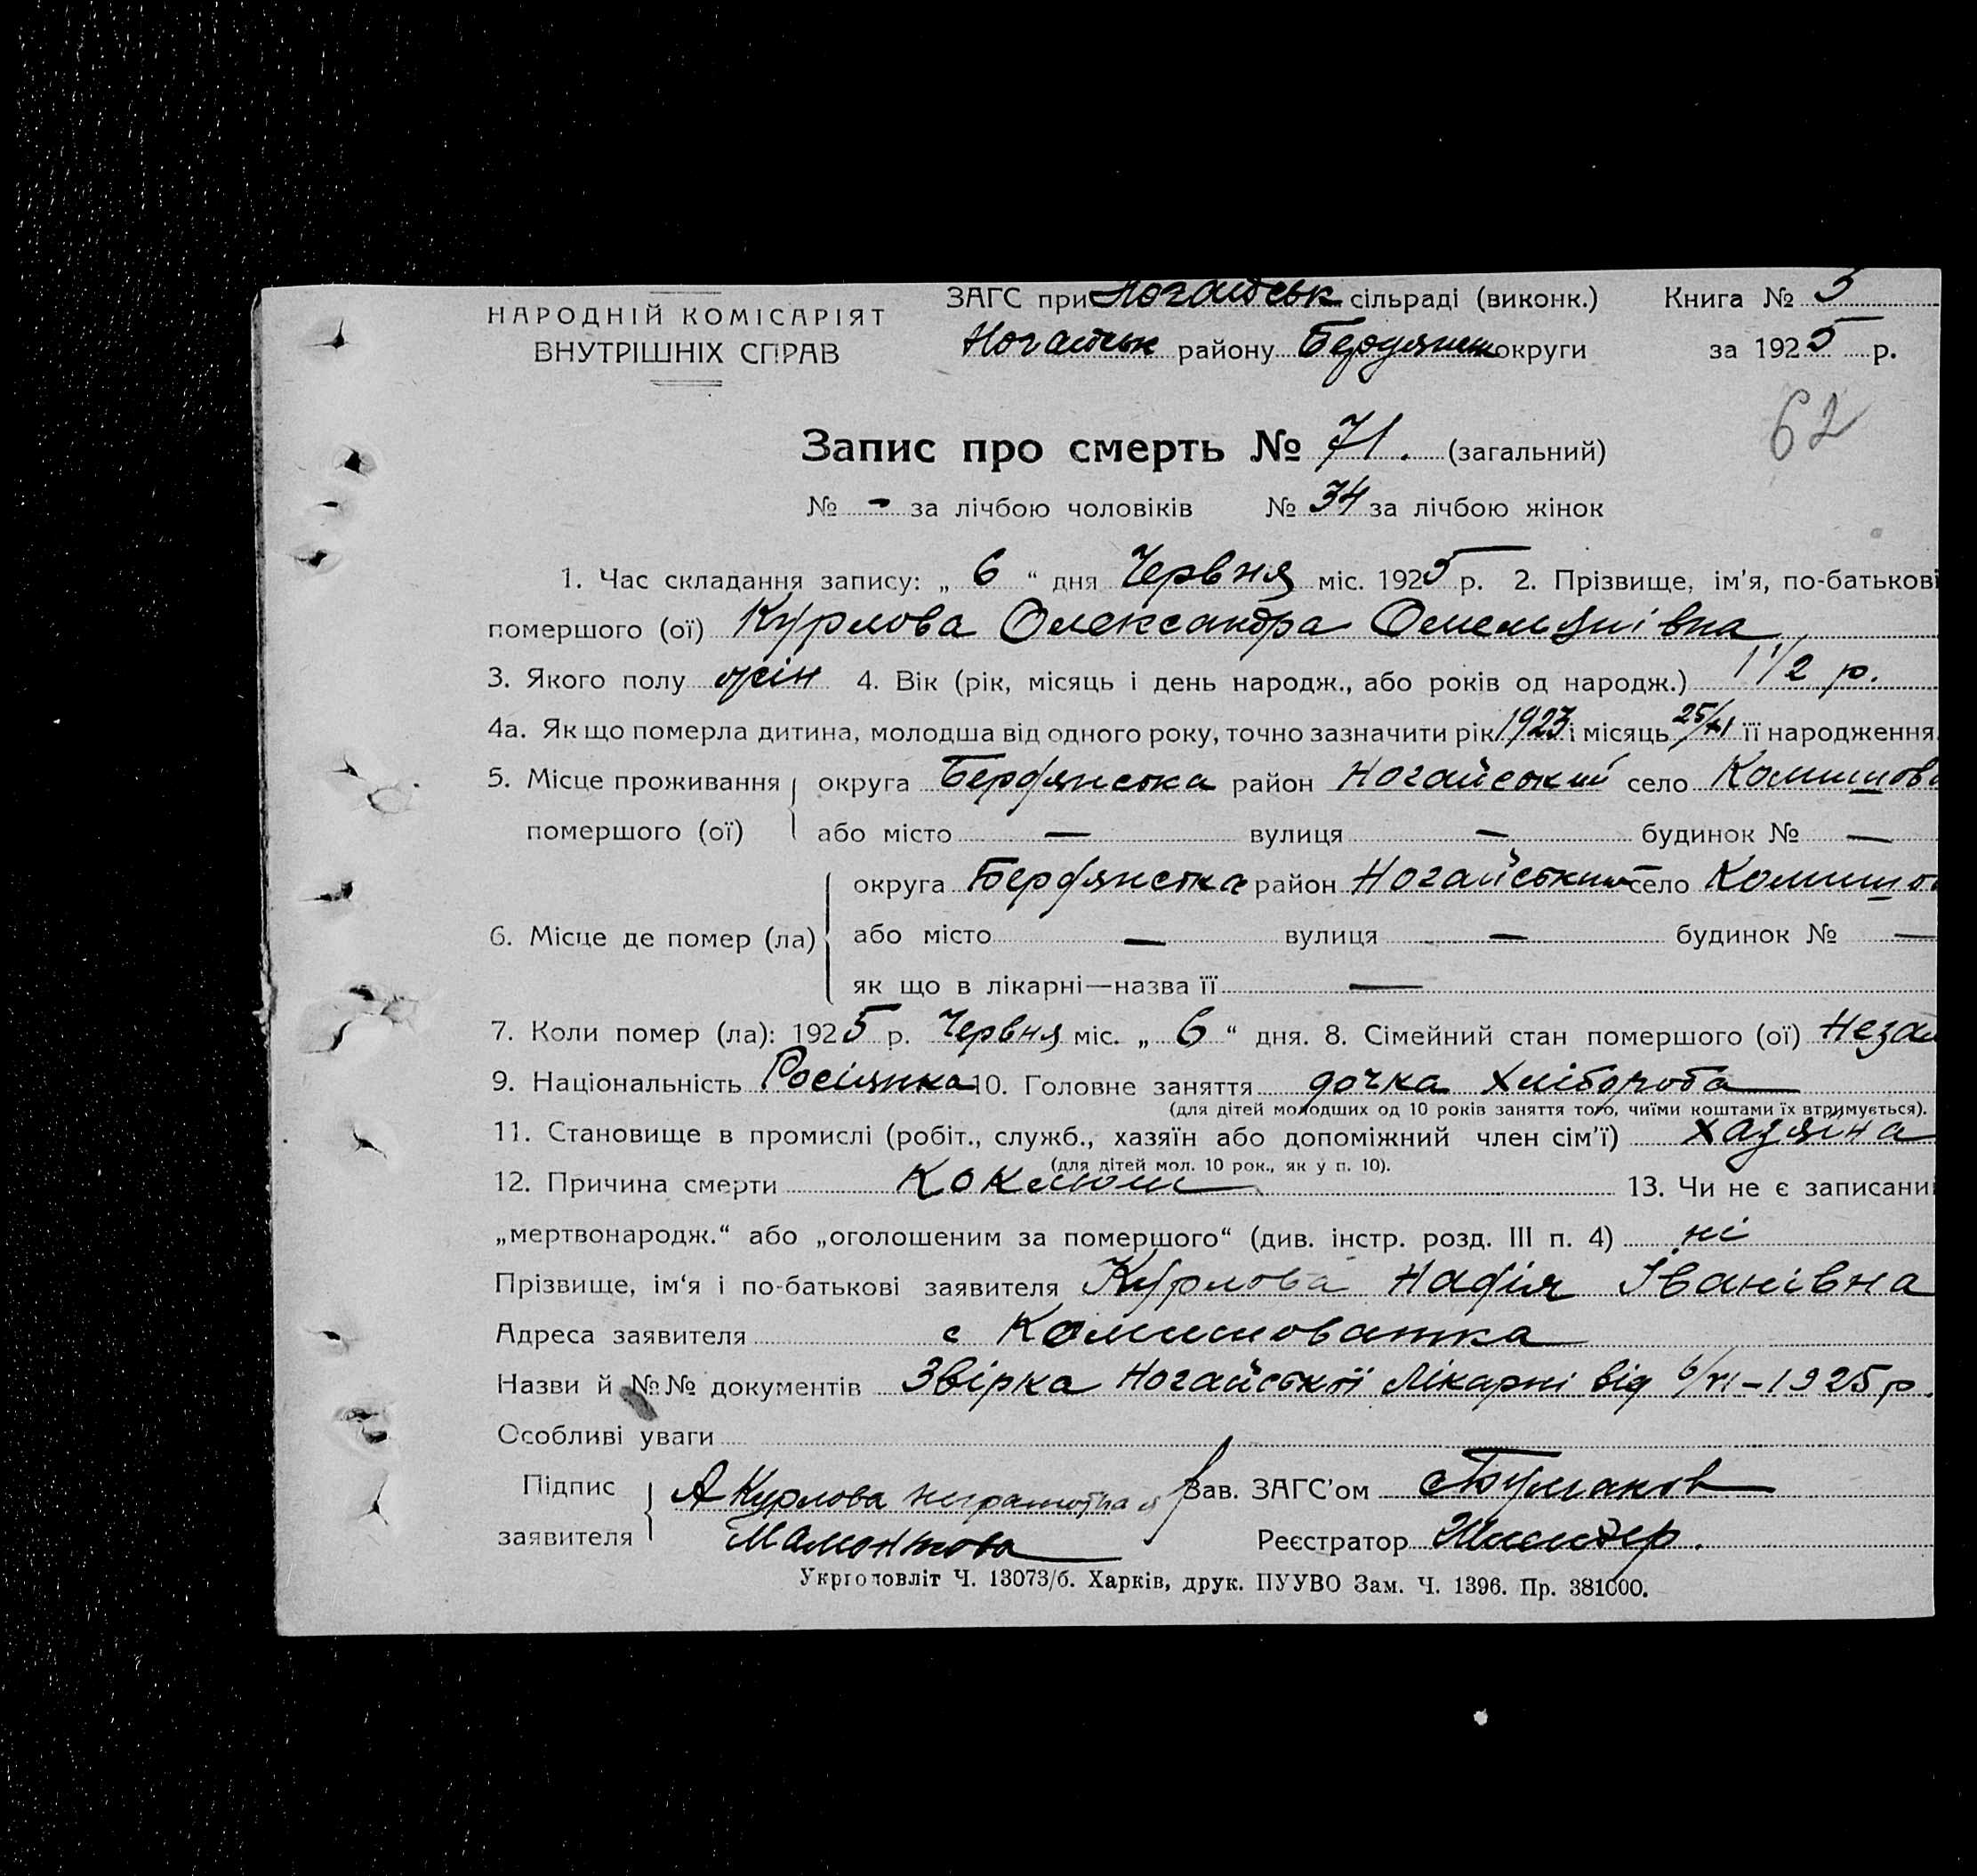 НАРОДНІЙ КОМІСАРІЯТ
ВНУТРІШНІХ СПРАВ
ЗАГС при Ногайськ сільраді (виконк.) Книга № 5
Ногайськ району Бердянськ округи за 1925 р.
62
Запис про смерть № 71. (загальний)
№ - за лічбою чоловіків № 34 за лічбою жінок
1. Час складання запису: „ 6 “ дня Червня міс. 1925 р. 2. Прізвище, ім’я, по-батькові
помершого (ої) Курлова Олександра Омельянівна
3. Якого полу жін 4. Вік (рік, місяць і день народж., або років од народж.) 1 1/2 р.
4а. Як що померла дитина, молодша від одного року, точно зазначити рік 1923 і місяць 25/XI її народження.
5. Місце проживання округа Бердянська район Ногайський село Комишова
помершого (ої) або місто — вулиця — будинок № —
округа Бердянська район Ногайський село Комишо
6. Місце де помер (ла) або місто — вулиця — будинок № —
як що в лікарні—назва її —
7. Коли помер (ла): 1925 р. Червня міс. „ 6 “ дня. 8. Сімейний стан помершого (ої) Неза
9. Національність Росіянка 10. Головне заняття дочка хлібороба
(для дітей молодших од 10 років заняття того, чиїми коштами їх втримується).
11. Становище в промислі (робіт., служб., хазяїн або допоміжний член сім’ї) хазяїна
(для дітей мол. 10 рок., як у п. 10).
12. Причина смерти Коклюш 13. Чи не є записани
„мертвонародж.“ або „оголошеним за помершого“ (див. інстр. розд. III п. 4) ні
Прізвище, ім‘я і по-батькові заявителя Курлова Надія Іванівна
Адреса заявителя с Комишоватка
Назви й №№ документів Звірка Ногайської Лікарні від 6/VI-1925 р.
Особливі уваги
Підпис А Курлова неграмотная Зав. ЗАГС’ом
заявителя Мамонтова Реєстратор
Укрголовліт Ч. 13073/б. Харків, друк. ПУУВО Зам. Ч. 1396. Пр. 381000.